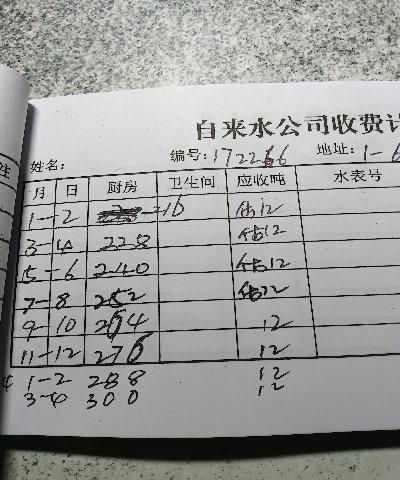 自来水公司收费计
姓名： 编号：1722 6 地址：1-6
月 日 厨房 卫生间 应收吨 水表号
1-2 216 估12
3-4 228 估12
5-6 240 估12
7-8 252 估12
9-10 264 12
11-12 276 12
1-2 288 12
3-4 300 12